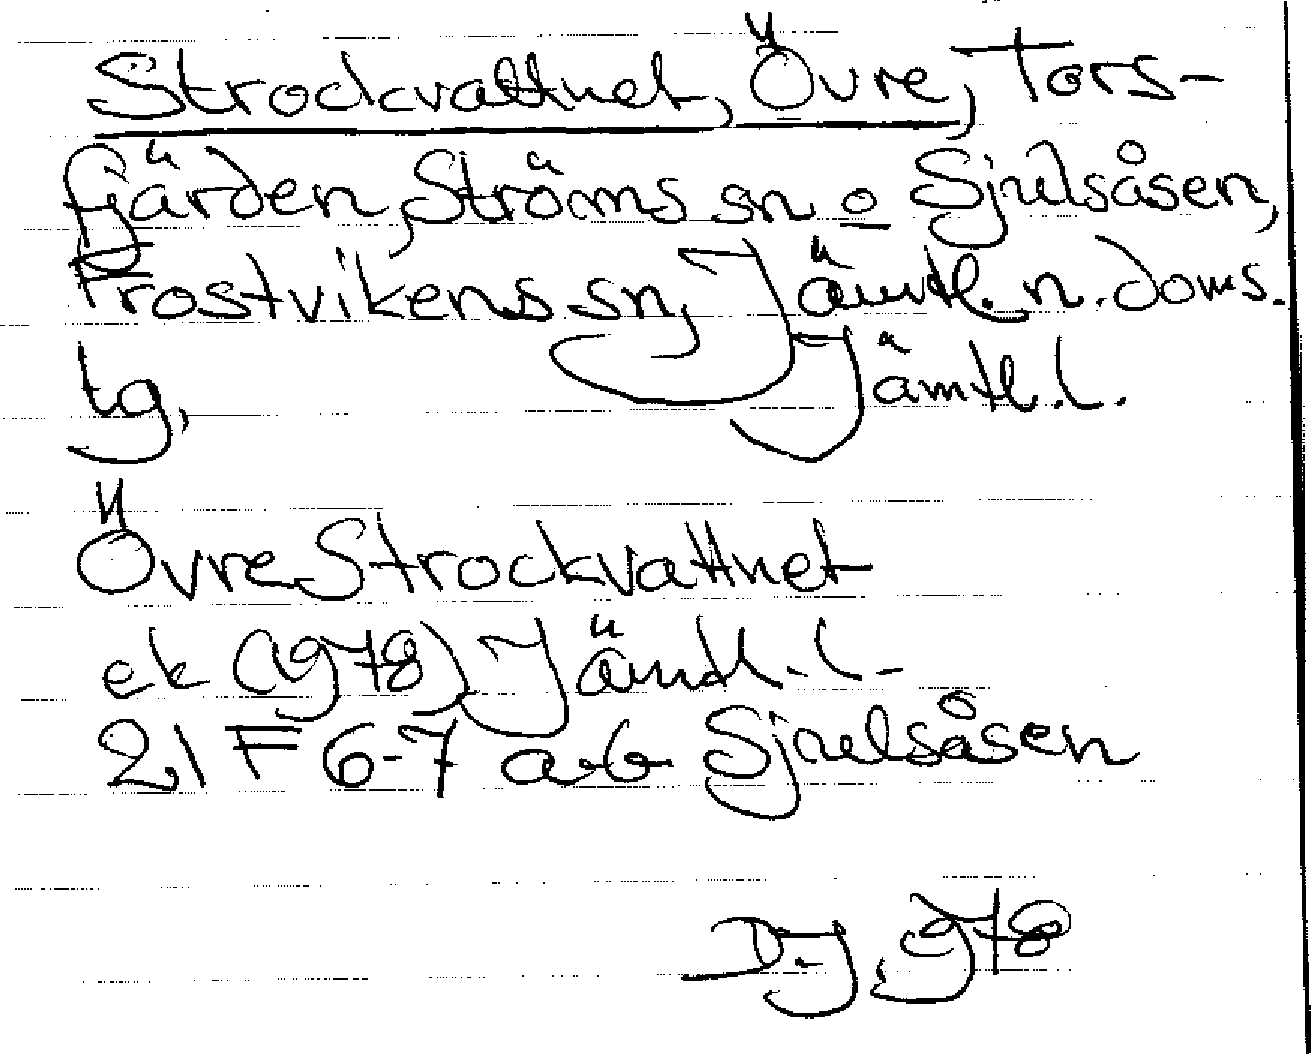 Strockvattnet, Övre, Tors-
fjärden, Ströms sn o Sjulsåsen,
Frostvikens sn, Jämtl. n. doms.
tg, Jämtl. l.
Övre Strockvattnet
ek (1978) Jämtl. l.
21 F 6-7 a-b Sjulsåsen
D.J. 1978